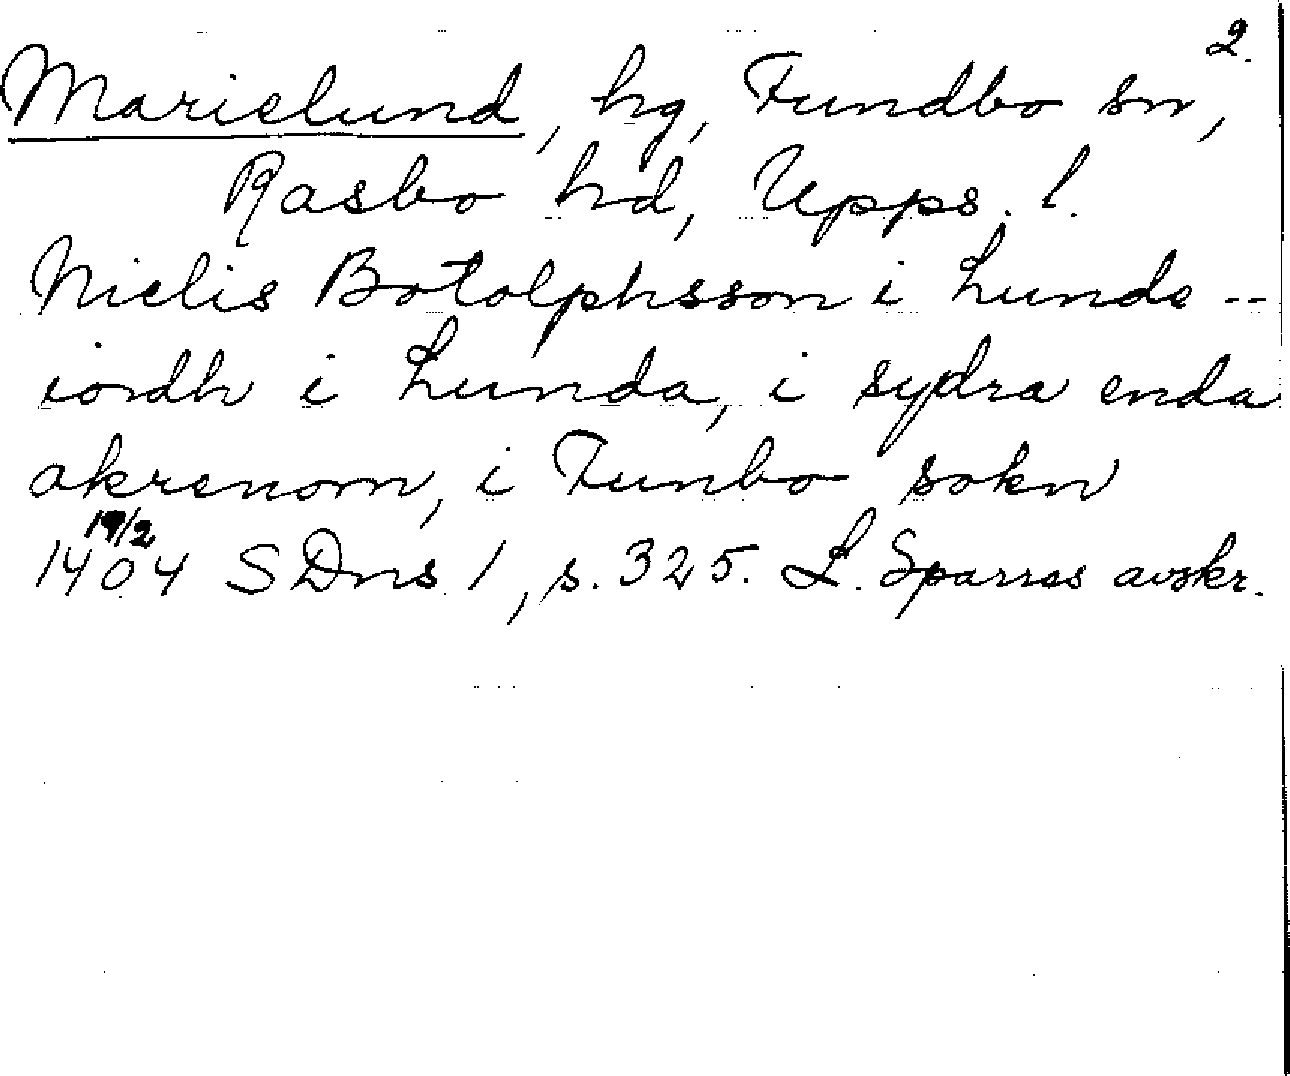 2.
Marielund, hg, Fundbo sn,
Rasbo hd, Upps. l.
Nielis Botolphsson i Lunde --
iordh i Lunda, i sydra enda
akrenom, i Funbo sokn
19/2
1404 SDns 1, s. 325. L. Sparres avskr.